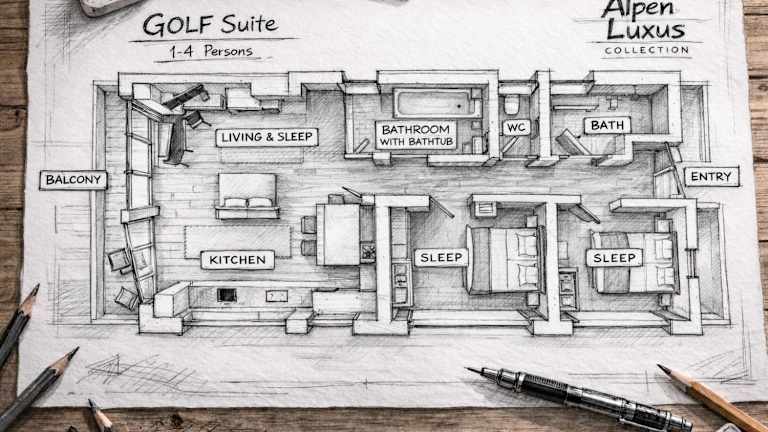 GOLF Suite
1-4 Persons
Alpen
Luxus
COLLECTION
LIVING & SLEEP
BATHROOM
WITH BATHTUB
WC
BATH
BALCONY
ENTRY
KITCHEN
SLEEP
SLEEP